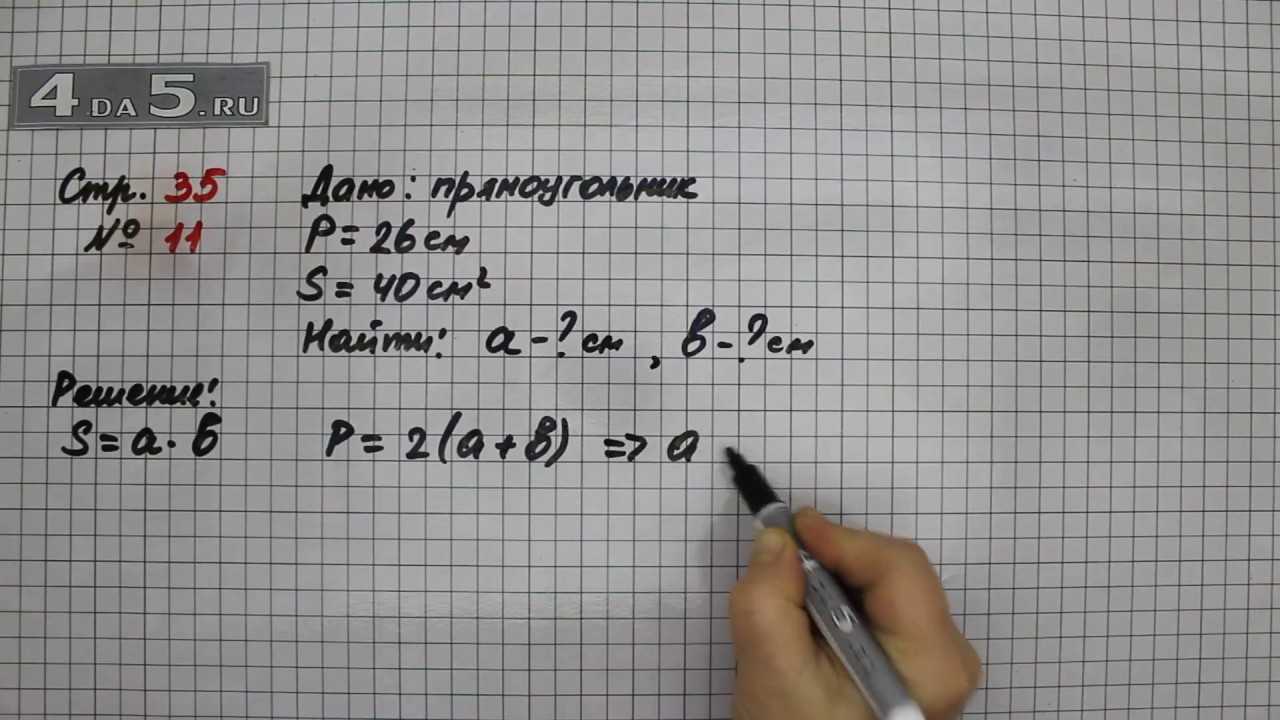 4DA5.RU
Стр. 35
№ 11
Дано: прямоугольник
P = 26 см
S = 40 см²
Найти: a - ? см, в - ? см
Решение:
S = a · б
P = 2(a + в) => a